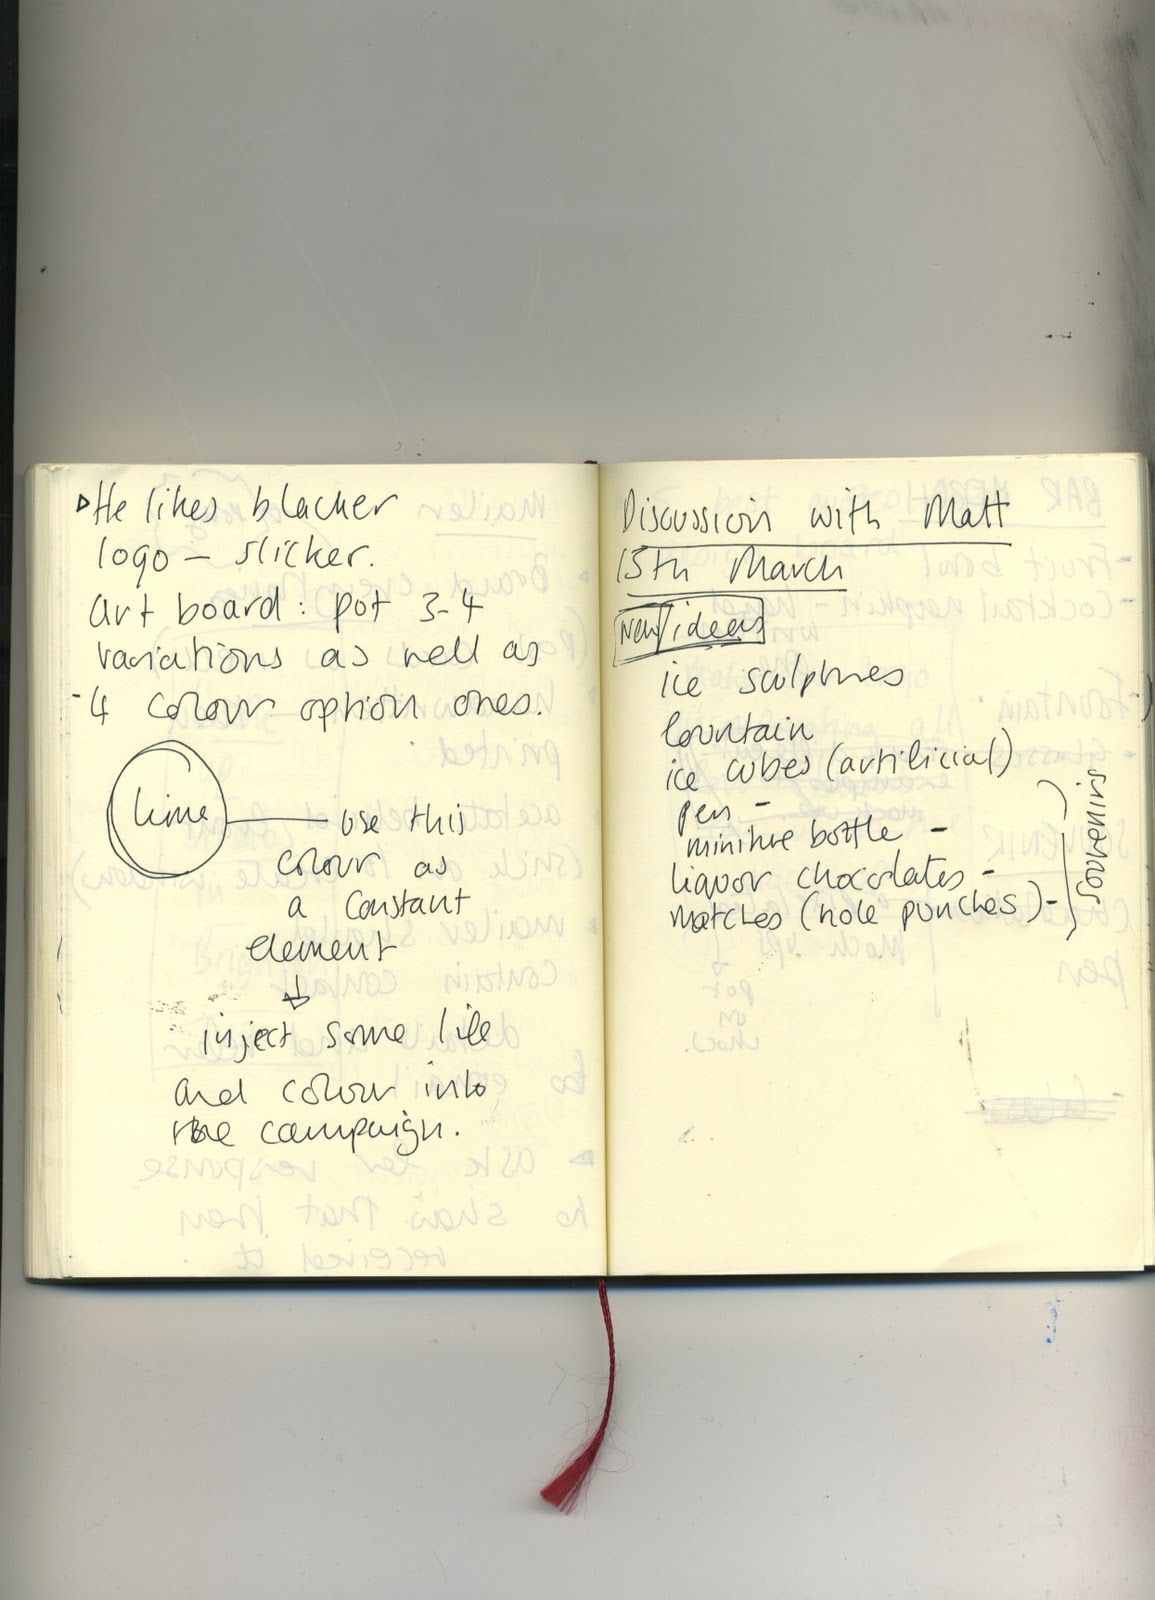 He likes blacker
logo – slicker.
art board: put 3-4
variations as well as
- 4 colour option ones.
lime
use this
colour as
a constant
element
inject some life
and colour into
the campaign.
Discussion with Matt
15th March
New ideas
ice sculptures
fountain
ice cubes (artificial)
pen -
miniture bottle -
liquor chocolates -
matches (hole punches) -
souvenirs